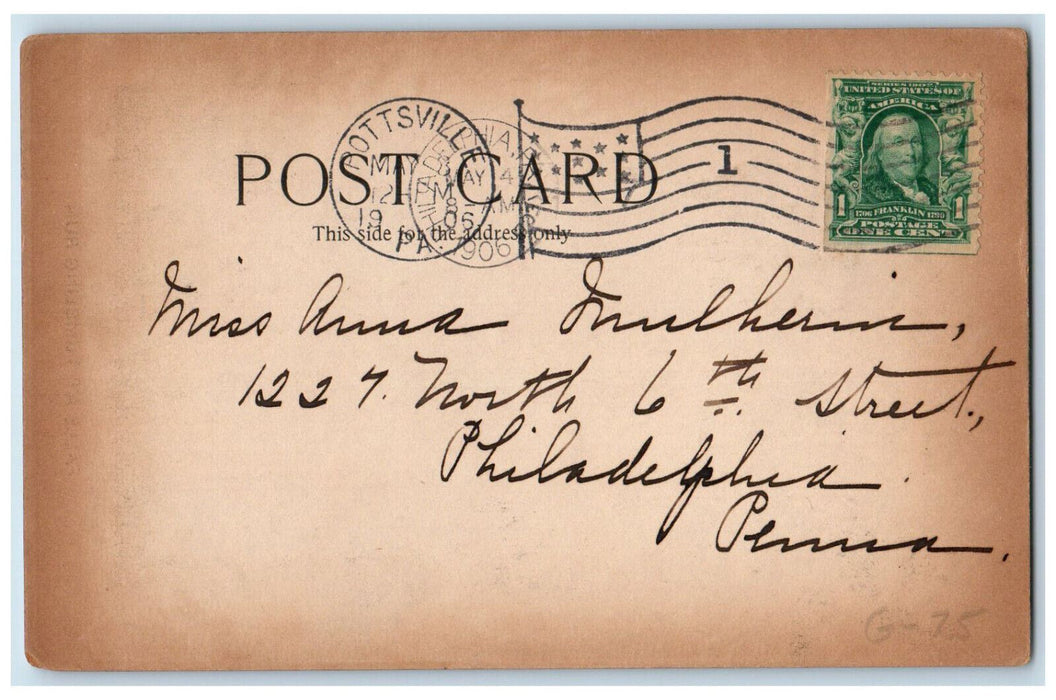 SERIES 1902
UNITED STATES OF
AMERICA
POTTSVILLE
MAY
12 M
19 06
PA.
PHILADELPHIA, PA.
MAY 4
8 AM
1906
1
POST CARD
This side for the address only
1 1706 FRANKLIN 1790 1
POSTAGE
ONE CENT
Miss Anna
1227. North 6th Street,
Philadelphia
Penna.
G-75